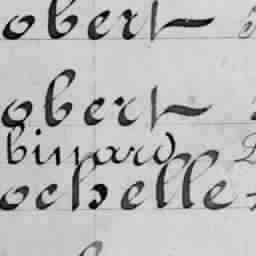 obert
obert
binard
ochelle